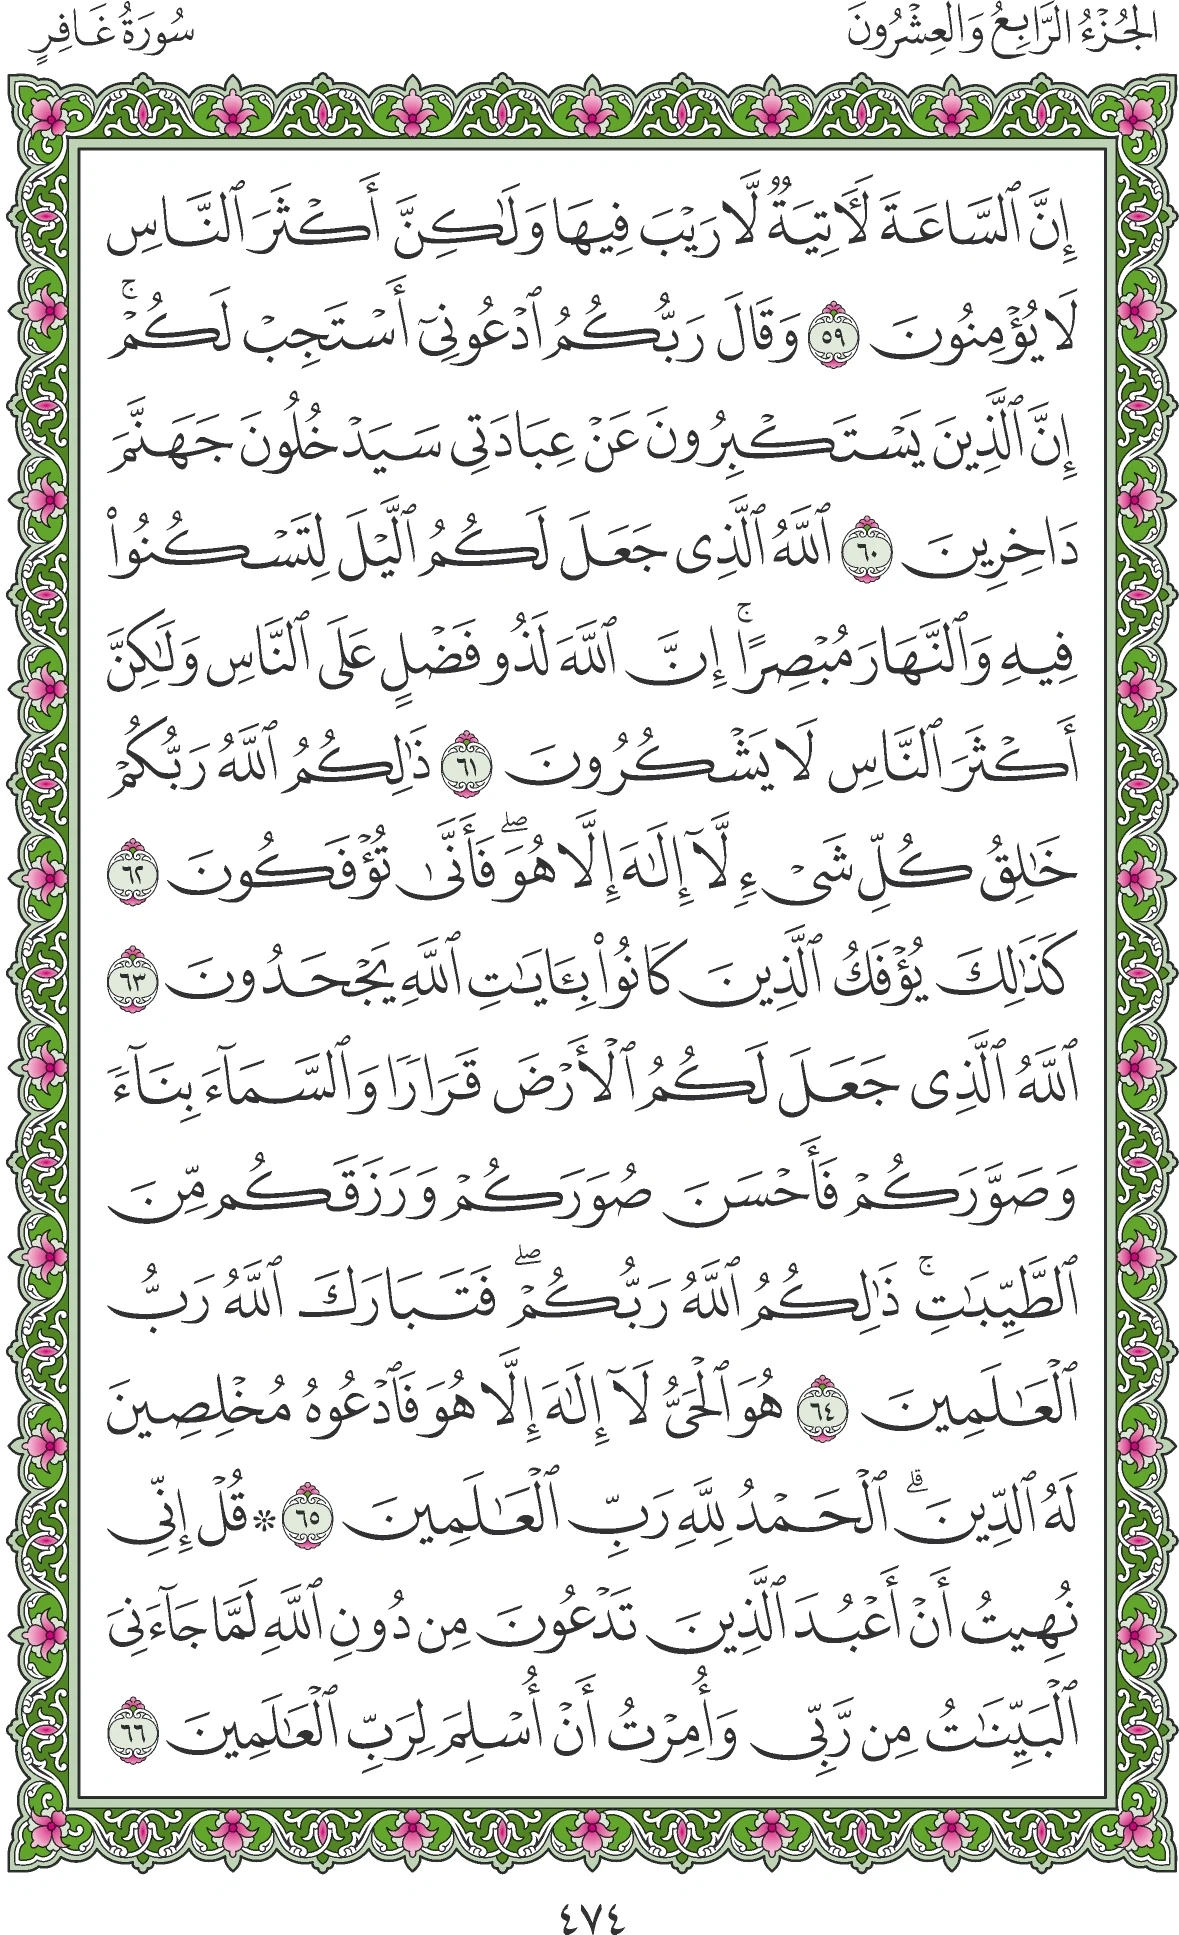 الجُزْءُ الرَّابِعُ وَالعِشْرُونَ
سُورَةُ غَافِرٍ
إِنَّ ٱلسَّاعَةَ لَأٓتِيَةٞ لَّا رَيۡبَ فِيهَا وَلَٰكِنَّ أَكۡثَرَ ٱلنَّاسِ
لَا يُؤۡمِنُونَ ٥٩ وَقَالَ رَبُّكُمُ ٱدۡعُونِيٓ أَسۡتَجِبۡ لَكُمۡۚ
إِنَّ ٱلَّذِينَ يَسۡتَكۡبِرُونَ عَنۡ عِبَادَتِي سَيَدۡخُلُونَ جَهَنَّمَ
دَاخِرِينَ ٦٠ ٱللَّهُ ٱلَّذِي جَعَلَ لَكُمُ ٱلَّيۡلَ لِتَسۡكُنُواْ
فِيهِ وَٱلنَّهَارَ مُبۡصِرًاۚ إِنَّ ٱللَّهَ لَذُو فَضۡلٍ عَلَى ٱلنَّاسِ وَلَٰكِنَّ
أَكۡثَرَ ٱلنَّاسِ لَا يَشۡكُرُونَ ٦١ ذَٰلِكُمُ ٱللَّهُ رَبُّكُمۡ
خَٰلِقُ كُلِّ شَيۡءٖ لَّآ إِلَٰهَ إِلَّا هُوَۖ فَأَنَّىٰ تُؤۡفَكُونَ ٦٢
كَذَٰلِكَ يُؤۡفَكُ ٱلَّذِينَ كَانُواْ بِـَٔايَٰتِ ٱللَّهِ يَجۡحَدُونَ ٦٣
ٱللَّهُ ٱلَّذِي جَعَلَ لَكُمُ ٱلۡأَرۡضَ قَرَارٗا وَٱلسَّمَآءَ بِنَآءٗ
وَصَوَّرَكُمۡ فَأَحۡسَنَ صُوَرَكُمۡ وَرَزَقَكُم مِّنَ
ٱلطَّيِّبَٰتِۚ ذَٰلِكُمُ ٱللَّهُ رَبُّكُمۡۖ فَتَبَارَكَ ٱللَّهُ رَبُّ
ٱلۡعَٰلَمِينَ ٦٤ هُوَ ٱلۡحَيُّ لَآ إِلَٰهَ إِلَّا هُوَ فَٱدۡعُوهُ مُخۡلِصِينَ
لَهُ ٱلدِّينَۗ ٱلۡحَمۡدُ لِلَّهِ رَبِّ ٱلۡعَٰلَمِينَ ٦٥ * قُلۡ إِنِّي
نُهِيتُ أَنۡ أَعۡبُدَ ٱلَّذِينَ تَدۡعُونَ مِن دُونِ ٱللَّهِ لَمَّا جَآءَنِيَ
ٱلۡبَيِّنَٰتُ مِن رَّبِّي وَأُمِرۡتُ أَنۡ أُسۡلِمَ لِرَبِّ ٱلۡعَٰلَمِينَ ٦٦
٤٧٤